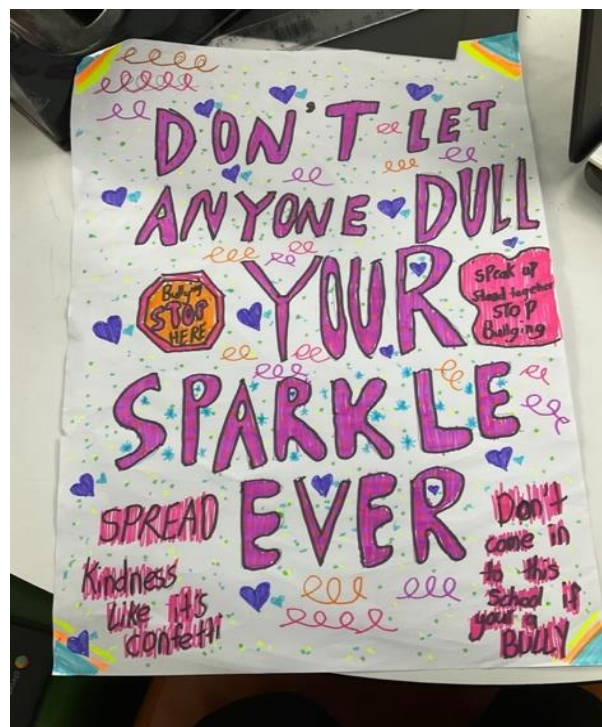 DON'T LET
ANYONE DULL
YOUR
Bullying
STOP
HERE
Speak up
Stand together
STOP
Bullying
SPARKLE
EVER
SPREAD
Kindness
Like it's
confetti
Don't
come in
to this
School if
your a
BULLY